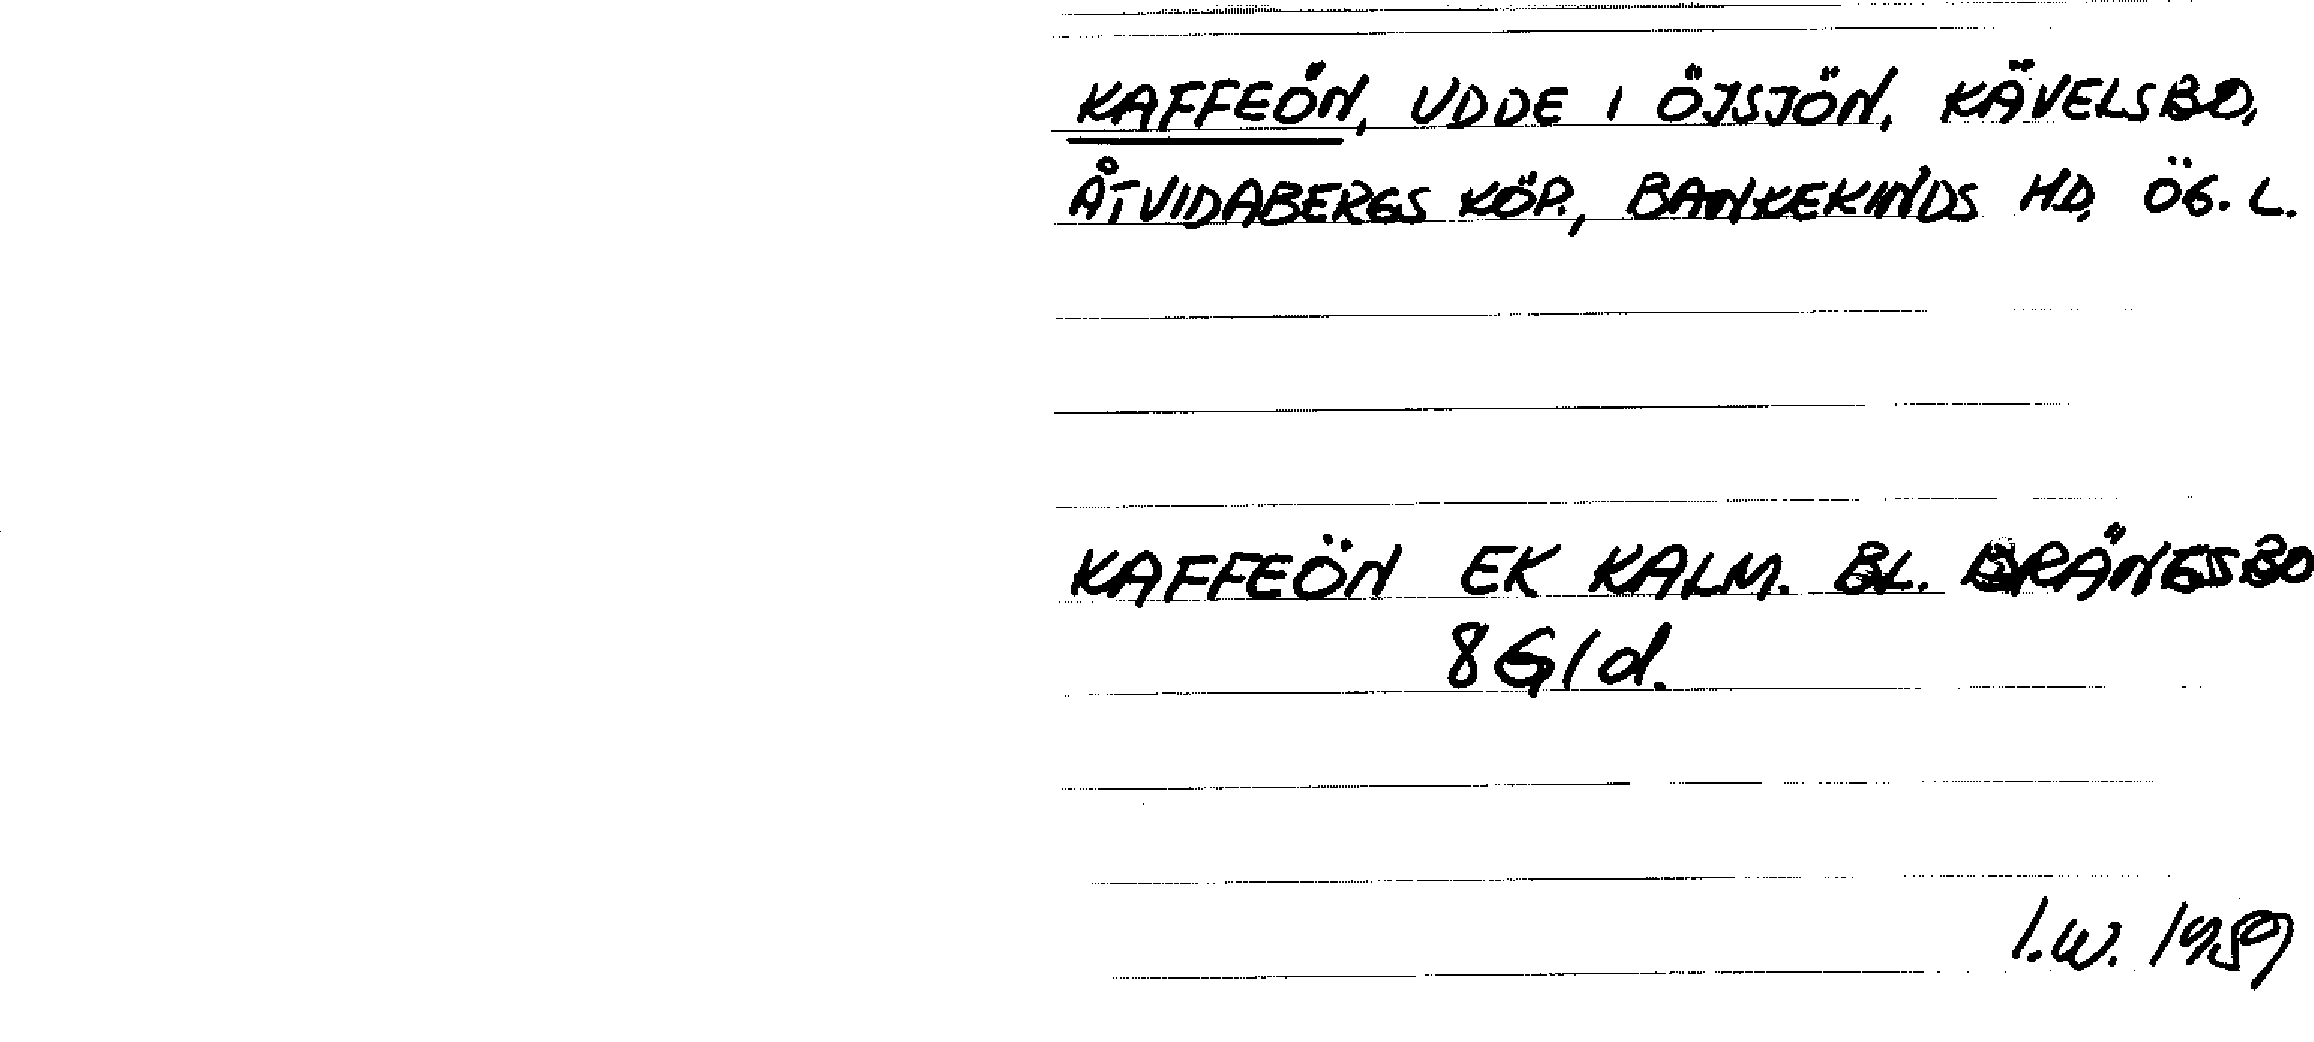 KAFFEÖN, UDDE I ÖJSJÖN, KÄVELSBO,
ÅTVIDABERGS KÖP., BANKEKINDS HD, ÖG. L.
KAFFEÖN EK KALM. BL. BRÄNGSBO
8G1d.
I.W. 1959